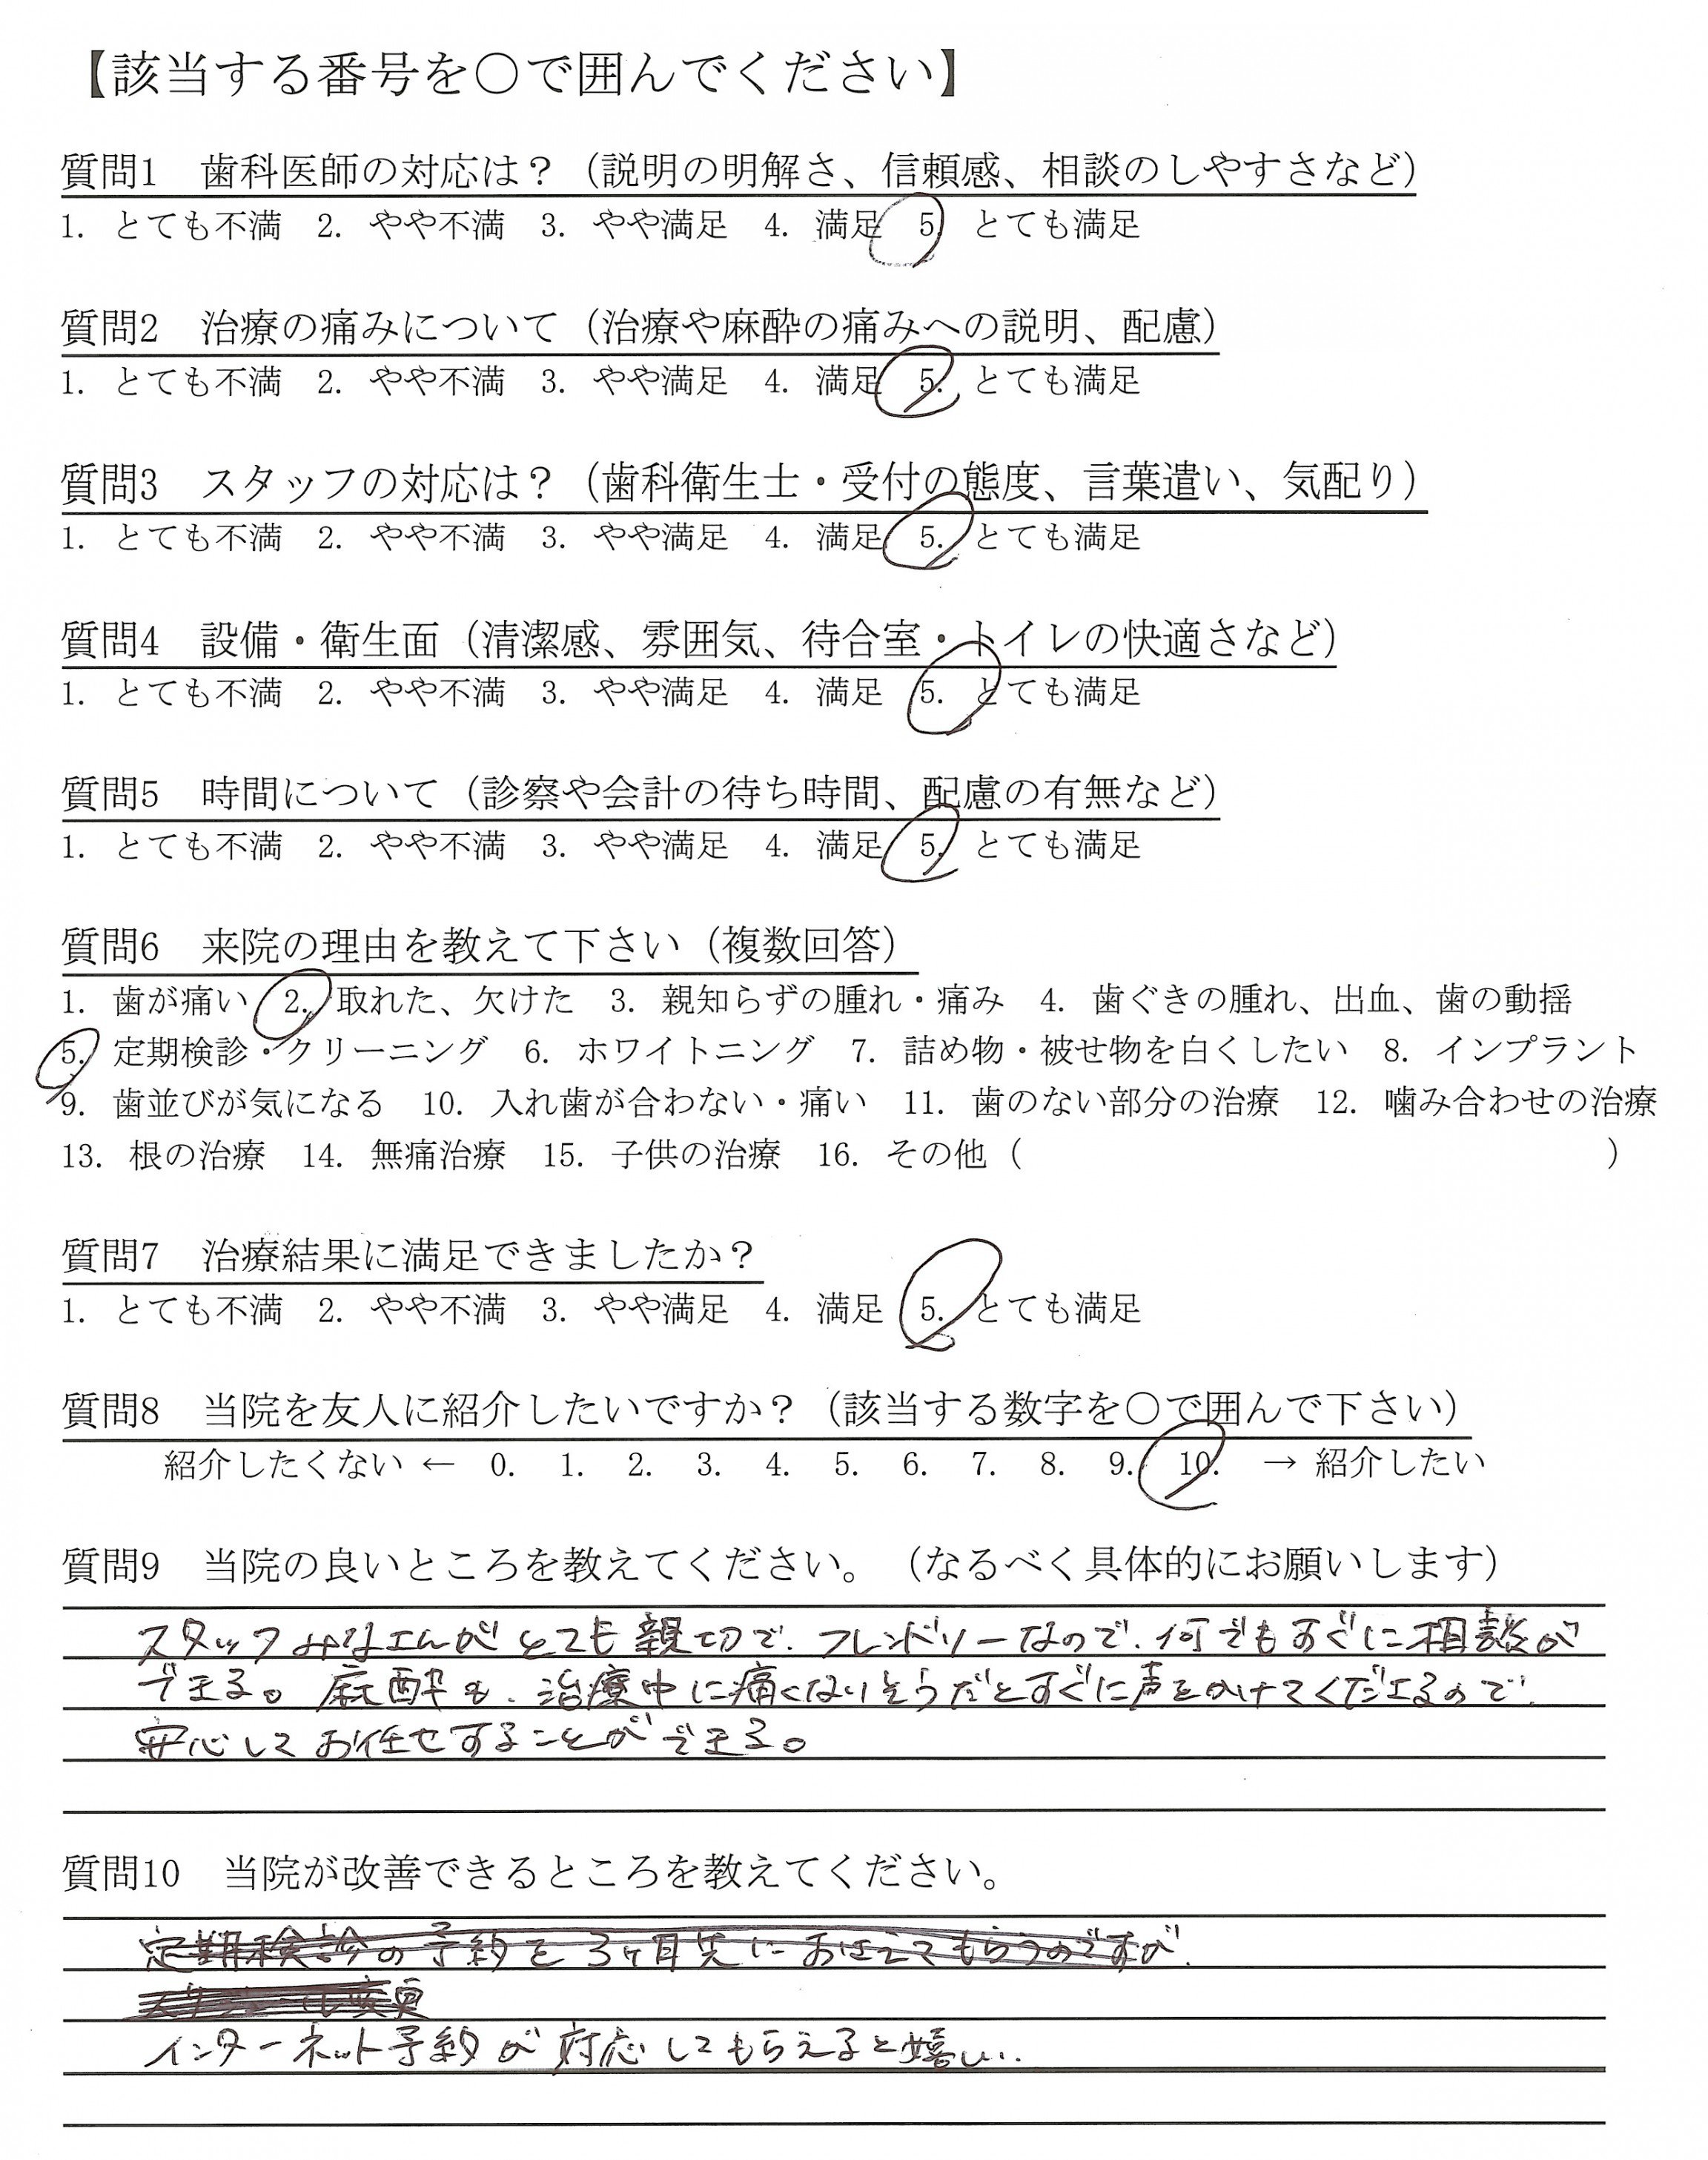 【該当する番号を○で囲んでください】
質問1　歯科医師の対応は？（説明の明解さ、信頼感、相談のしやすさなど）
1. とても不満　2. やや不満　3. やや満足　4. 満足　5. とても満足
質問2　治療の痛みについて（治療や麻酔の痛みへの説明、配慮）
1. とても不満　2. やや不満　3. やや満足　4. 満足　5. とても満足
質問3　スタッフの対応は？（歯科衛生士・受付の態度、言葉遣い、気配り）
1. とても不満　2. やや不満　3. やや満足　4. 満足　5. とても満足
質問4　設備・衛生面（清潔感、雰囲気、待合室・トイレの快適さなど）
1. とても不満　2. やや不満　3. やや満足　4. 満足　5. とても満足
質問5　時間について（診察や会計の待ち時間、配慮の有無など）
1. とても不満　2. やや不満　3. やや満足　4. 満足　5. とても満足
質問6　来院の理由を教えて下さい（複数回答）
1. 歯が痛い　2. 取れた、欠けた　3. 親知らずの腫れ・痛み　4. 歯ぐきの腫れ、出血、歯の動揺
5. 定期検診・クリーニング　6. ホワイトニング　7. 詰め物・被せ物を白くしたい　8. インプラント
9. 歯並びが気になる　10. 入れ歯が合わない・痛い　11. 歯のない部分の治療　12. 噛み合わせの治療
13. 根の治療　14. 無痛治療　15. 子供の治療　16. その他（　　　）
質問7　治療結果に満足できましたか？
1. とても不満　2. やや不満　3. やや満足　4. 満足　5. とても満足
質問8　当院を友人に紹介したいですか？（該当する数字を○で囲んで下さい）
紹介したくない ← 0. 1. 2. 3. 4. 5. 6. 7. 8. 9. 10. → 紹介したい
質問9　当院の良いところを教えてください。（なるべく具体的にお願いします）
スタッフみなさんがとても親切で、フレンドリーなので、何でもすぐに相談が
できる。麻酔も、治療中に痛くなりそうだとすぐに声をかけてくださるので、
安心してお任せすることができる。
質問10　当院が改善できるところを教えてください。
定期検診の予約を3ヶ月先におさえてもらうのですが、
変更
インターネット予約が対応してもらえると嬉しい．